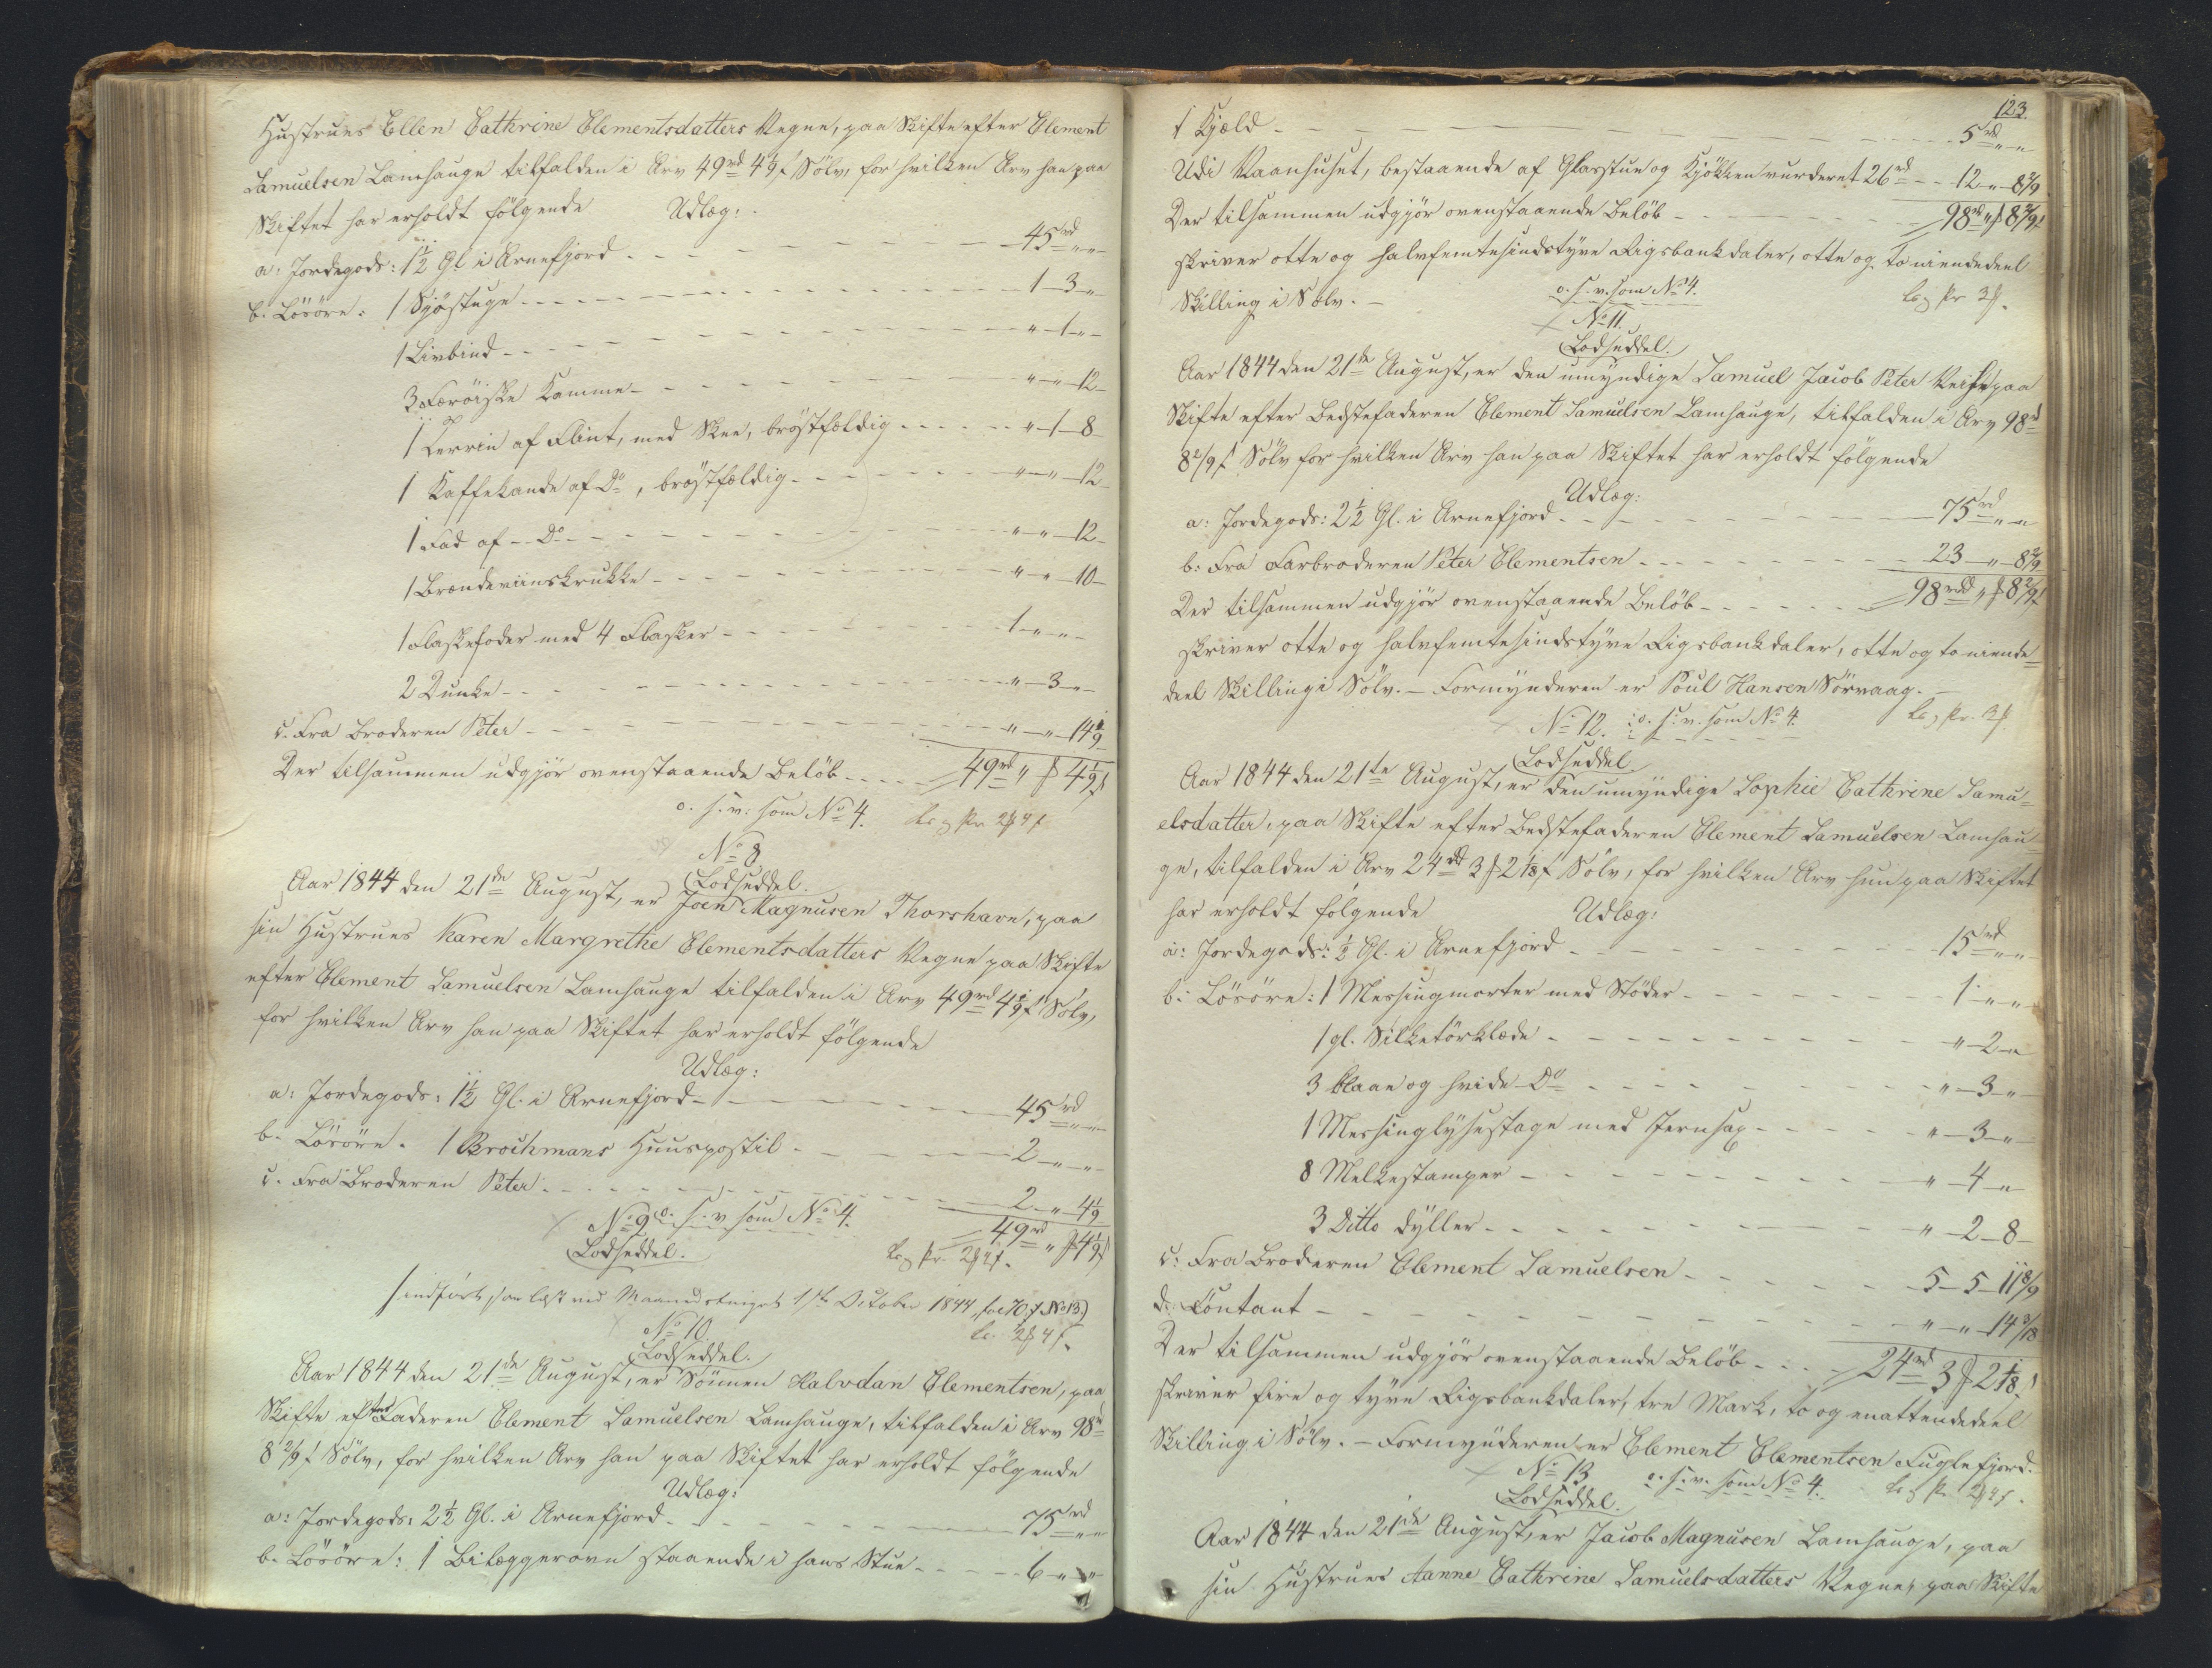 Hustrues Ellen Cathrine Clementsdatters Vegne, paa Skifte efter Clement
Samuelsen Lamhauge tilfalden i Arv 49rd 4 1/9 s Sölv, for hvilken Arv han paa
Skiftet har erholdt fölgende Udlæg:
a: Jordegods: 1 1/2 Gl i Arnefjord - - - 45rd " "
b. Lösöre: 1 Sjöstuge - - - 1 - 3 - "
1 Livbind - - - " - 1 - "
3 Færöiske Kamme - - - " - " - 12
1 Terrin af Flint, med Skee, bröstfældig - - - " - 1 - 8
1 Kaffekande af Do, bröstfældig - - - " - " - 12
1 Fad af - Do - - - " - " - 12
1 Brændeviinskrukke - - - " - " - 10
1 Flaskefoder med 4 Flasker - - - 1 - " - "
2 Dunke - - - " - 3 - "
c. Fra Broderen Peter - - - " - " - 14 1/9
Der tilsammen udgjör ovenstaaende Belöb - - - 49rd " 4 1/9 s
o. s. v. som No 4.
No 8
Lodseddel.
Aar 1844 den 21de August, er Joen Magnusen Thorshavn, paa
sin Hustrues Karen Margrethe Clementsdatters Vegne paa Skifte
efter Clement Samuelsen Lamhauge tilfalden i Arv 49rd 4 1/9 s Sölv,
for hvilken Arv han paa Skiftet har erholdt fölgende
Udlæg:
a: Jordegods: 1 1/2 Gl. i Arnefjord - - - 45rd " "
b. Lösöre. 1 Brochmans Huuspostil - - - 2 - " - "
c. Fra Broderen Peter - - - 2 - " - 4 1/9
o. s. v som No 4. 49rd " 4 1/9 s
No 9
Lodseddel.
indfört, som læst ved Maanedstinget 1ste October 1844, fol 70, No 13)
No 10.
Lodseddel.
Aar 1844 den 21de August, er Sönnen Halvdan Clementsen, paa
Skifte efter Faderen Clement Samuelsen Lamhauge, tilfalden i Arv 98rd
8 2/9 s Sölv, for hvilken Arv han paa Skiftet har erholdt fölgende
Udlæg:
a: Jordegods: 2 1/2 Gl. i Arnefjord - - - 75rd " "
b. Lösöre: 1 Bilæggerovn staaende i hans Stue - - - 6 - " - "
123.
1 Kjæld - - - 5rd " "
Udi Vaanhuset, bestaaende af Glarstue og Kjökken vurderet 26rd - - 12 - " - 8 2/9
Der tilsammen udgjör ovenstaaende Belöb - - - 98rd " 8 2/9 s
skriver otte og halvfemtesindstyve Rigsbankdaler, otte og to niendedeel
Skilling i Sölv. - o. s. v. som No 4.
No 11.
Lodseddel.
Aar 1844 den 21de August, er den umyndige Samuel Jacob Peter paa
Skifte efter Bedstefaderen Clement Samuelsen Lamhauge, tilfalden i Arv 98rd
8 2/9 s Sölv for hvilken Arv han paa Skiftet har erholdt fölgende
Udlæg:
a: Jordegods: 2 1/2 Gl. i Arnefjord - - - 75rd " "
b: Fra Farbroderen Peter Clementsen - - - 23 - " - 8 2/9
Der tilsammen udgjör ovenstaaende Belöb - - - 98rd " 8 2/9 s
skriver otte og halvfemtesindstyve Rigsbankdaler, otte og to niende-
deel Skilling i Sölv. - Formynderen er Poul Hansen Sörvaag. -
No 12. o. s. v. som No 4.
Lodseddel
Aar 1844 den 21de August, er den umyndige Sophie Cathrine Samu-
elsdatter, paa Skifte efter Bedstefaderen Clement Samuelsen Lamhau-
ge, tilfalden i Arv 24rd 3 2 1/18 s Sölv, for hvilken Arv hun paa Skiftet
har erholdt fölgende Udlæg:
a: Jordegods: 1/2 Gl. i Arnefjord - - - 15rd " "
b: Lösöre: 1 Messingmorter med Stöder - - - 1 - " - "
1 gl. Silketörklæde - - - " - 2 - "
3 blaae og hvide Do - - - " - 3 - "
1 Messinglysestage med Jernsax - - - " - 3 - "
8 Melkestamper - - - " - 4 - "
3 Ditto Dyller - - - " - 2 - 8
c: Fra Broderen Clement Samuelsen - - - 5 - 5 - 11 8/9
d: Contant - - - " - " - 14 3/18
Der tilsammen udgjör ovenstaaende Belöb - - - 24rd 3 2 1/18 s
skriver fire og tyve Rigsbankdaler, tre Mark, to og enattendedeel
Skilling i Sölv. - Formynderen er Clement Clementsen Fuglefjord.
No 13 o. s. v. som No 4.
Lodseddel.
Aar 1844 den 21de August, er Jacob Magnusen Lamhauge, paa
sin Hustrues Aanne Cathrine Samuelsdatters Vegne, paa Skifte